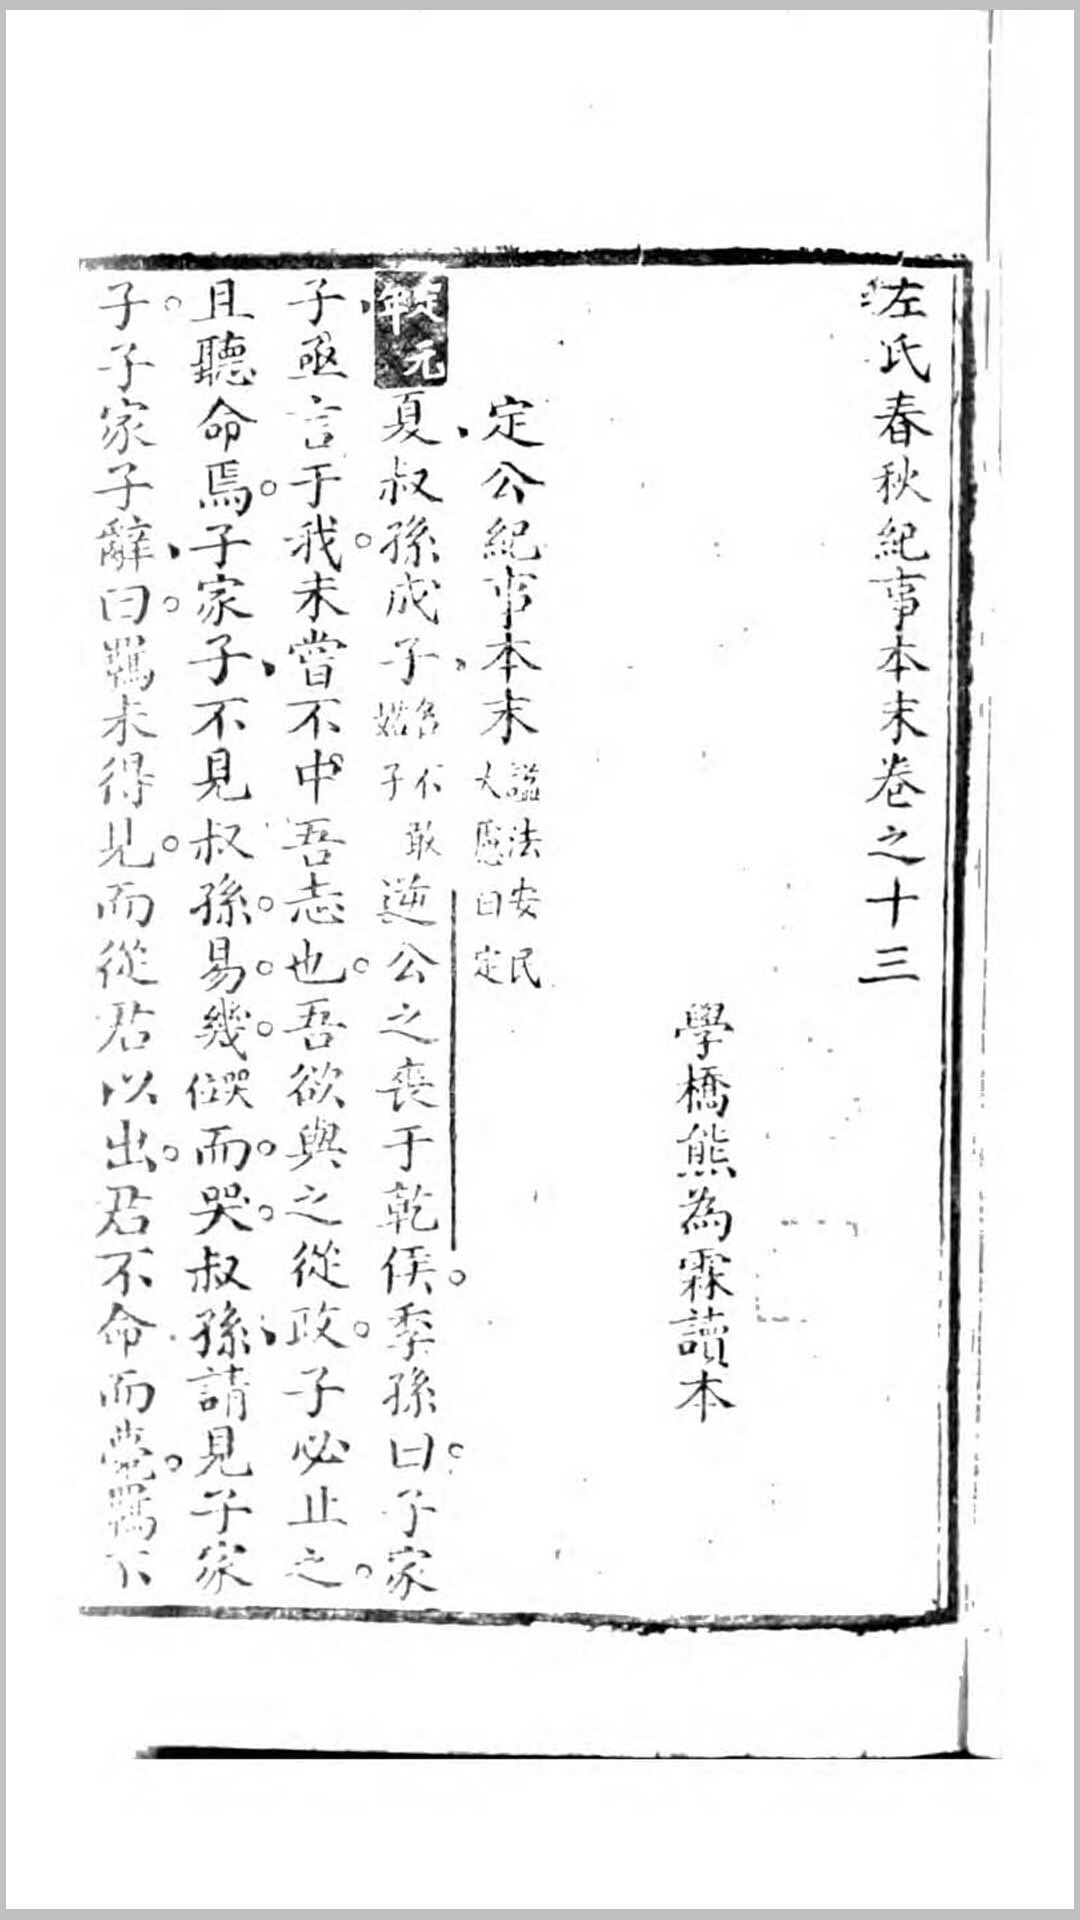 左氏春秋紀事本末卷之十三
學橋熊為霖讀本
定公紀事本末諡法安民大慮曰定
定元年夏叔孫成子名不敢婼子逆公之喪于乾侯季孫曰子家
子亟言于我未嘗不中吾志也吾欲與之從政子必止之
且聽命焉子家子不見叔孫易幾哭位而哭叔孫請見子家
子子家子辭曰羈未得見而從君以出君不命而薨羈不